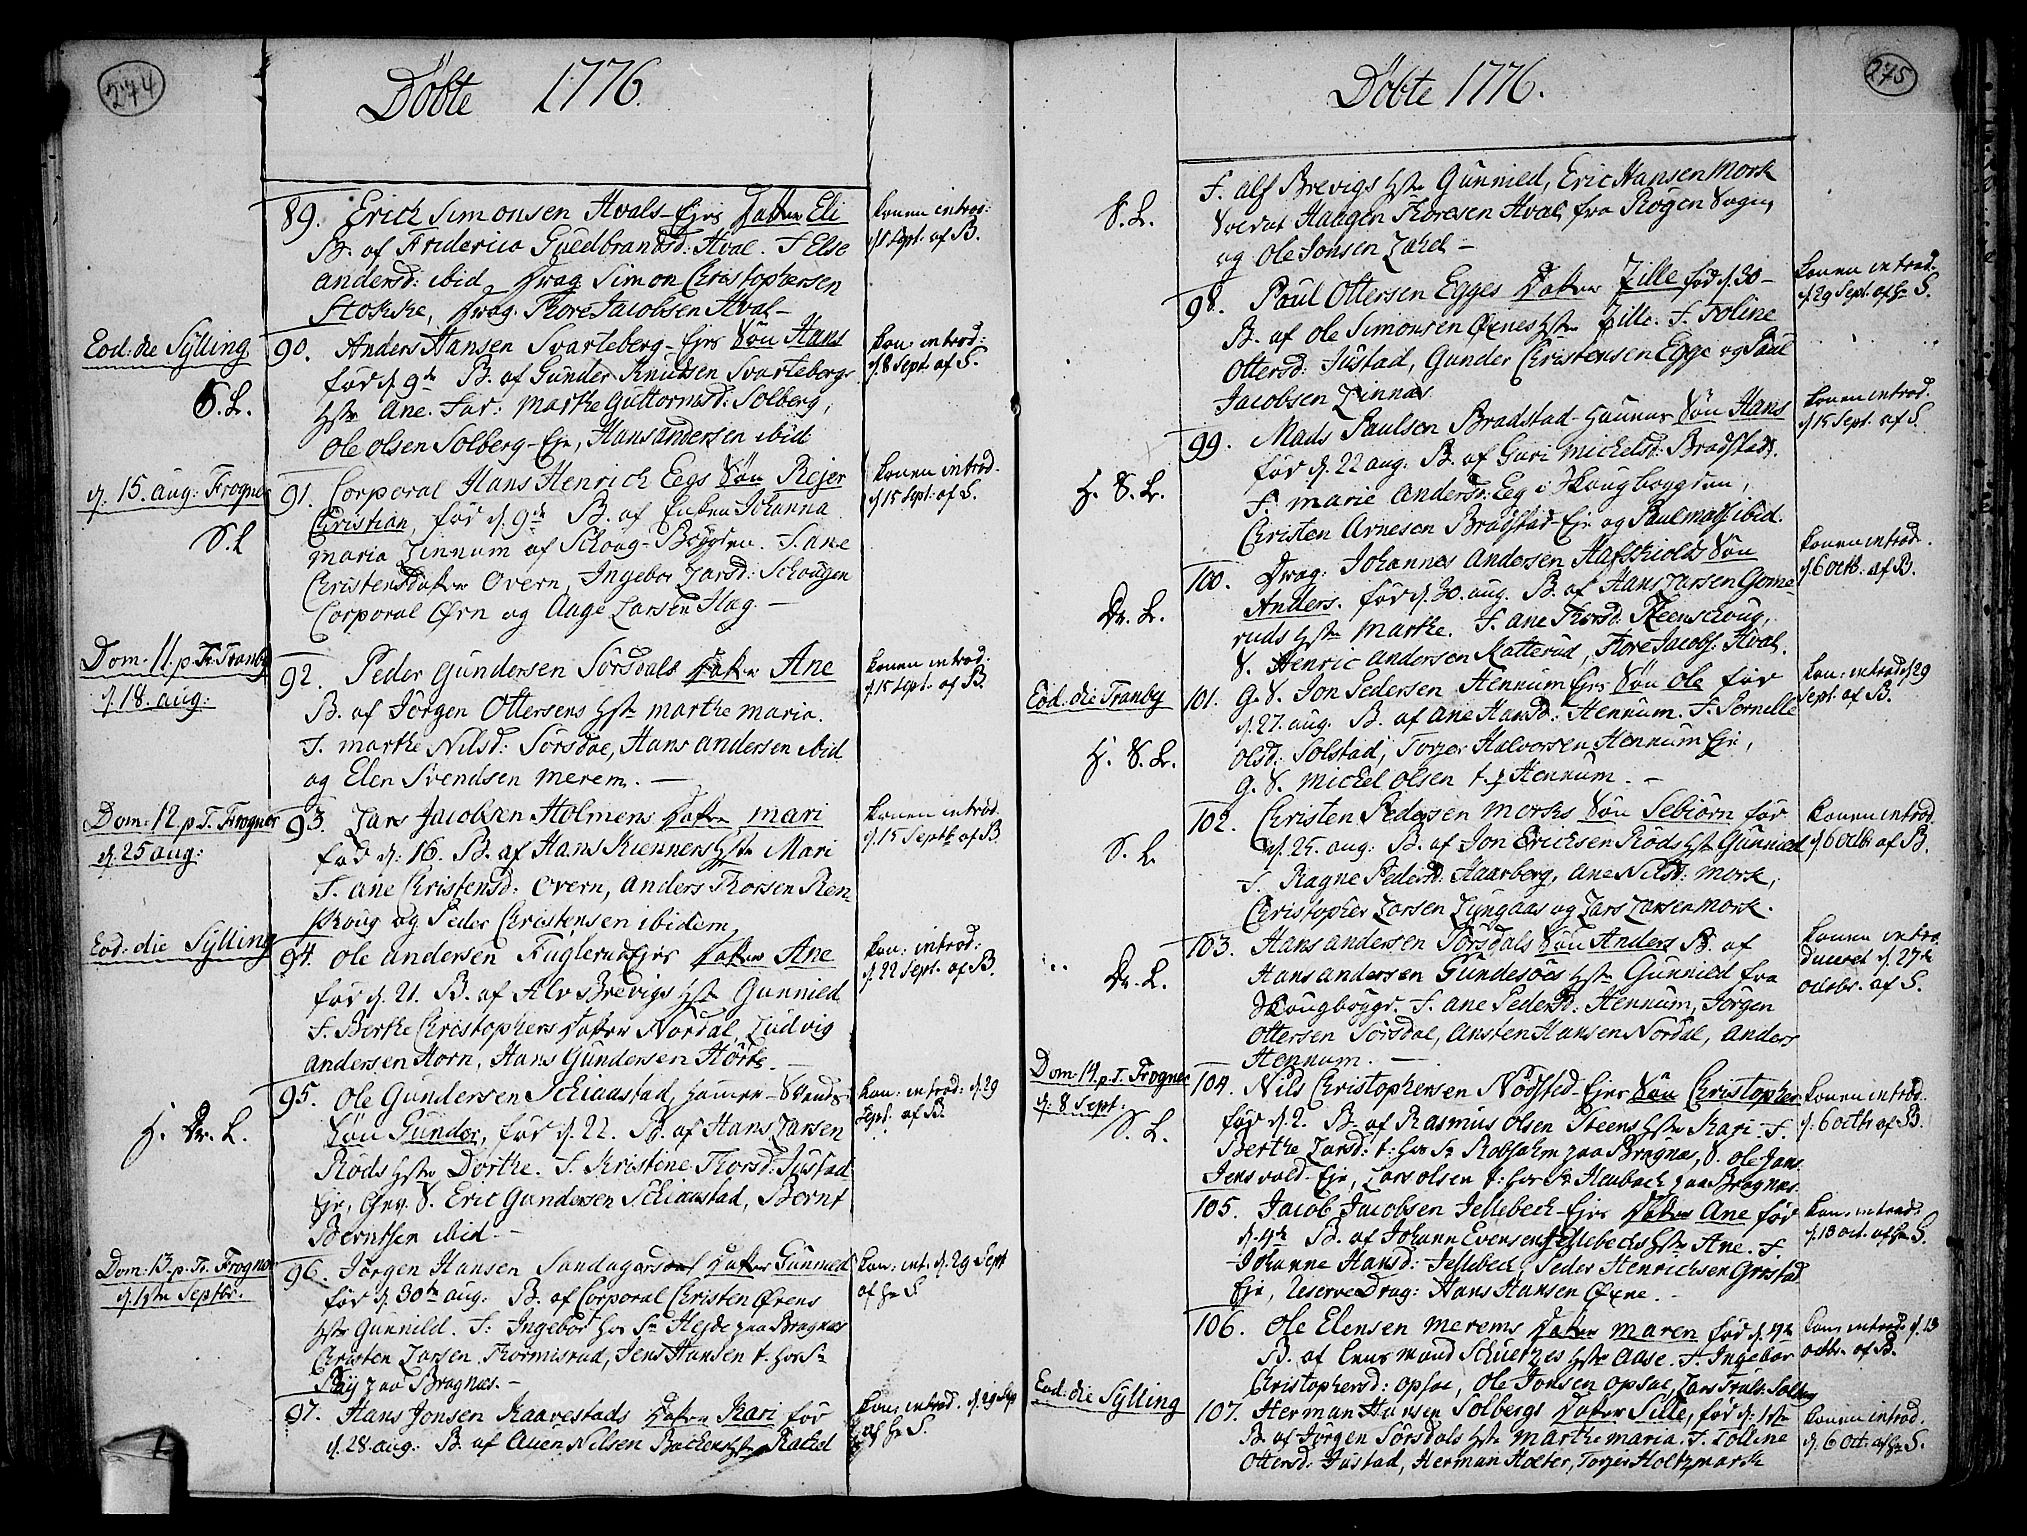 274
Døbte 1776.
89. Erich Simonsen Hvals-Ejes Datter Eli
B. af Friderica Guldbrandsd: Hval. F Else
Andersd: ibid Drag. Simon Christophersen
Stokke, Drag. Thore Jacobsen Hval-
Konen introd:
af B.
Eod: die Sylling
S. L.
90. Anders Hansen Svarteberg-Ejes Søn Hans
før d. 9de B. af Gunder Knudsen Svartebergs
Hstr Ane. Far: Marthe Guttormsd: Solberg,
Ole Olsen Solberg-Eje, Hans Andersen ibid
Kon: introd:
d. 8 Sept. af S.
d. 15. aug: Frogner
S. L
91. Corporal Hans Henrich Eegs Søn Rejer
Christian, før d. 9de B. af Enken Johanna
Maria Linnum af Schoug-Bøygden. F. Ane
Christensdatter Overn, Ingebor Larsd: Schougen
Corporal Ørn og Aage Larsen Hag. -
Konen introd.
d 15 Sept: af S.
Dom. 11. p. Tr. Tranby
d. 18. aug:
92. Peder Gundersen Sørsdals Datter Ane
B. af Jørgen Ottersens Hstr Marthe Maria.
F. Marthe Nilsd: Sørsdae, Hans Andersen ibid
og Elen Svendsen Merem. -
Konen introd.
d. 15 Sept. af B.
Dom: 12. p. T. Frogner
d. 25 aug:
93. Lars Jacobsen Holmens Datter Mari
fød d: 16. B. af Hans Kienners Hstr Mari
F. Ane Christensd: Overn, Anders Thorsen Ren-
skoug og Peder Christensen ibidem
Konen introd.
d. 15 Septr af B.
Eod: die Sylling
94. Ole Andersen Fuglerud Ejes Datter Ane
før d. 21. B. af Alv Brevigs Hstr Gunnild
F. Birthe Christophersdatter Nordal, Ludvig
Andersen Horn, Hans Gundersen Hørte. -
Kon: introd:
d. 22 Sept. af B.
H. Dr. L.
95. Ole Gundersen Schiaastad,
Søn Gunder, før d. 22. B. af Hans Larsen
Røds Hstr Dorthe. F. Kristine Thorsd: Justad
Eje, Gev. S. Eric Gundersen Schiaastad, Bernt
Berntsen ibid. -
Kon: introd: d. 29
Sept. af B.
Dom. 13. p. Tr. Frogner
d. 1ste Septbr.
96. Jørgen Hansen Datter Gunnild
før d. 30te aug: B. af Corporal Christen Ørens
Hstr Gunnild. F: Ingebor hos Sr Hejde paa Bragnæs
Christen Larsen Thormistad, Jens Hansen t. hos Sr
Bragnæs. -
Kon: int: d. 29 Sept
af Hr S
97. Hans Jonsen Kaarestads Datter Kari før
d. 28 aug: B. af Auen Nilsen Backens Hstr Rachel
Kon: introd. d. 29 Sep
af Hr S.
275
Døbte 1776.
S. L.
F. Alf Brevigs Hstr Gunnied, Eric Hansen Mork
Soldat Haagen Thoresen Hval, fra Røgen Sogn,
og Ole Jonsen Lahel -
98. Paul Ottersen Egges Datter Zille før d. 30-
B. af Ole Simonsen Øxnes Hstr Zille. F. Toline
Ottersd: Justad, Gunder Christensen Egge og Paul
Jacobsen Linnæs
Konen introd.
d 29 Sept. af Hr S.
H. S. L.
99. Mads Paulsen Bradstad- Søn Hans
før d. 22 aug: B. af Guri Michelsd: Bradstad.
F. Marie Andersd: Eeg i Skougboygden,
Christen Arnesen Bradstad-Eje og Paul Mads: ibid.
Konen introd.
d 15 Sept. af S.
Dr. L.
100. Drag: Johannes Andersen Hafskiolds Søn
Anders. før d. 30. aug. B. af Hans Larsen Gome-
ruds Hstr Marthe. F. Ane Thorsd: Reenschoug,
S. Henric Andersen Katterud, Thore Jacobs: Hval.
Konen introd.
d 6 Octb: af B.
Eod. die Tranby
H. S. L.
101. G. S. Jon Pedersen Hennum Ejes Søn Ole før
d. 27. aug. B. af Ane Hansd: Hennum. F. Pernille
Olsd: Solstad, Torger Halvorsen Hennum Eje,
G. S. Michel Olsen t. p Hennum. -
Kon: introd d 29
Sept. af B.
S. L.
102. Christen Pedersen Morks Søn Sebiørn før
d. 25. aug: B. af Jon Ericksen Røds Hstr Gunnied
F. Ragne Pedersd: Haarberg, Ane Nilsd: Mork,
Christopher Larsen Lyngaas og Lars Larsen Mork.
Konen introd.
d 6 Octbr af B.
Dr. L.
103. Hans Andersen Sørsdals Søn Anders B. af
Hans Andersen Gundesøes Hstr Gunnied fra
Skougboygd. F. Ane Pedersd: Hennum, Jørgen
Ottersen Sørsdal, Ansten Hansen Nordal, Anders
Hennum. -
Konen intro-
duceret d. 27de
octobr. af S.
Dom. 14. p. T. Frogner
d. 8 Sept.
S. L.
104. Nils Christophersen Nødsted-Ejes Søn Christopher
før d. 2. B. af Rasmus Olsen Steens Hstr Kari. F.
Berthe Larsd: t: hos Sr Robsahm paa Bragnæs, S. Ole Jans:
Jensvold-Eje, Lars Olsen t: hos Sr Heubach paa Bragnæs.
Konen introd:
d. 6 octbr af B.
105. Jacob Jacobsen Jellebeck-Ejes Datter Ane før
d. 4de B. af Johan Evensen Jellebechs Hstr Ane. F.
Johanne Hansd: Jellebeck, Peder Henrichsen Grøstad
Eje, Reserve Drag: Hans Hansen Øxne. -
Kon: introd:
d. 13 oct. af Hr S.
106. Ole Elensen Merems Datter Maren før d. 4de
B. af Schuetzes Hstr Aase. F. Ingebor
Christophersd: Opsae, Ole Jonsen Opsae,
Kon: introd: d. 13
octbr. af B.
Eod: die Sylling
107. Herman Hansen Solbergs Datter Sille, før d: 1ste
B. af Jørgen Sørsdals Hstr Marthe Maria. F. Tolline
Ottersd: Justad, Herman Holter, Torger Holtzmark
Konen introd.
d. 6 Oct: af Hr S.